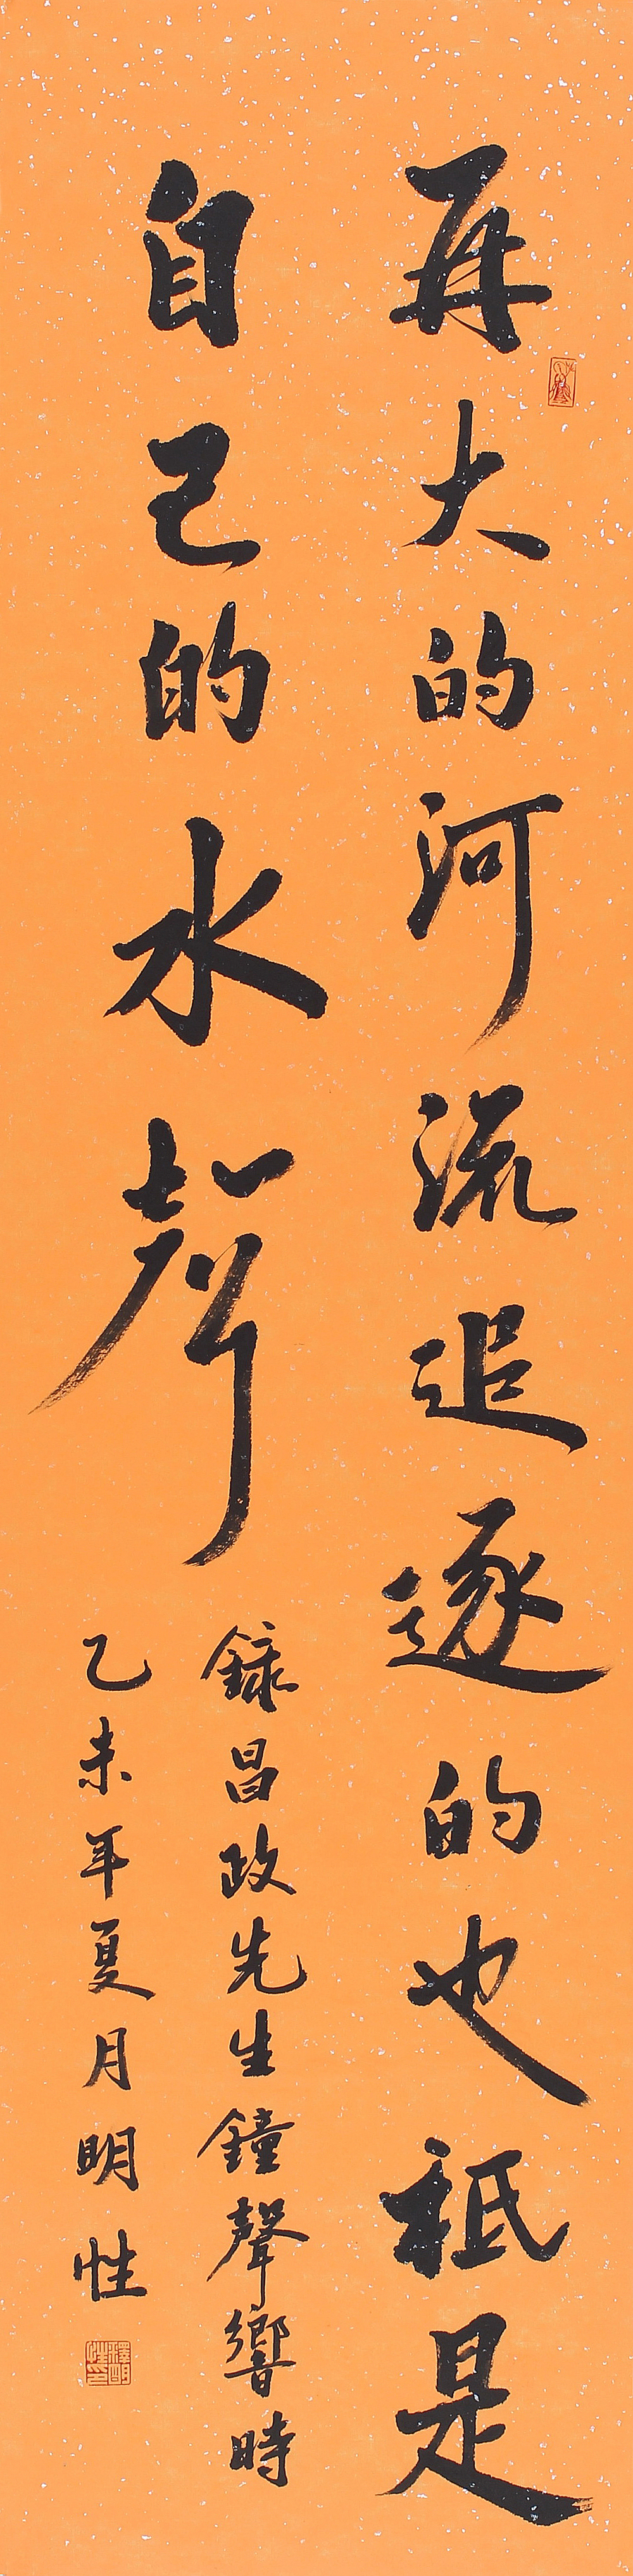 再大的河流追逐的也祇是
自己的水聲
錄昌政先生鐘聲響時
乙未年夏月明性
釋明性印